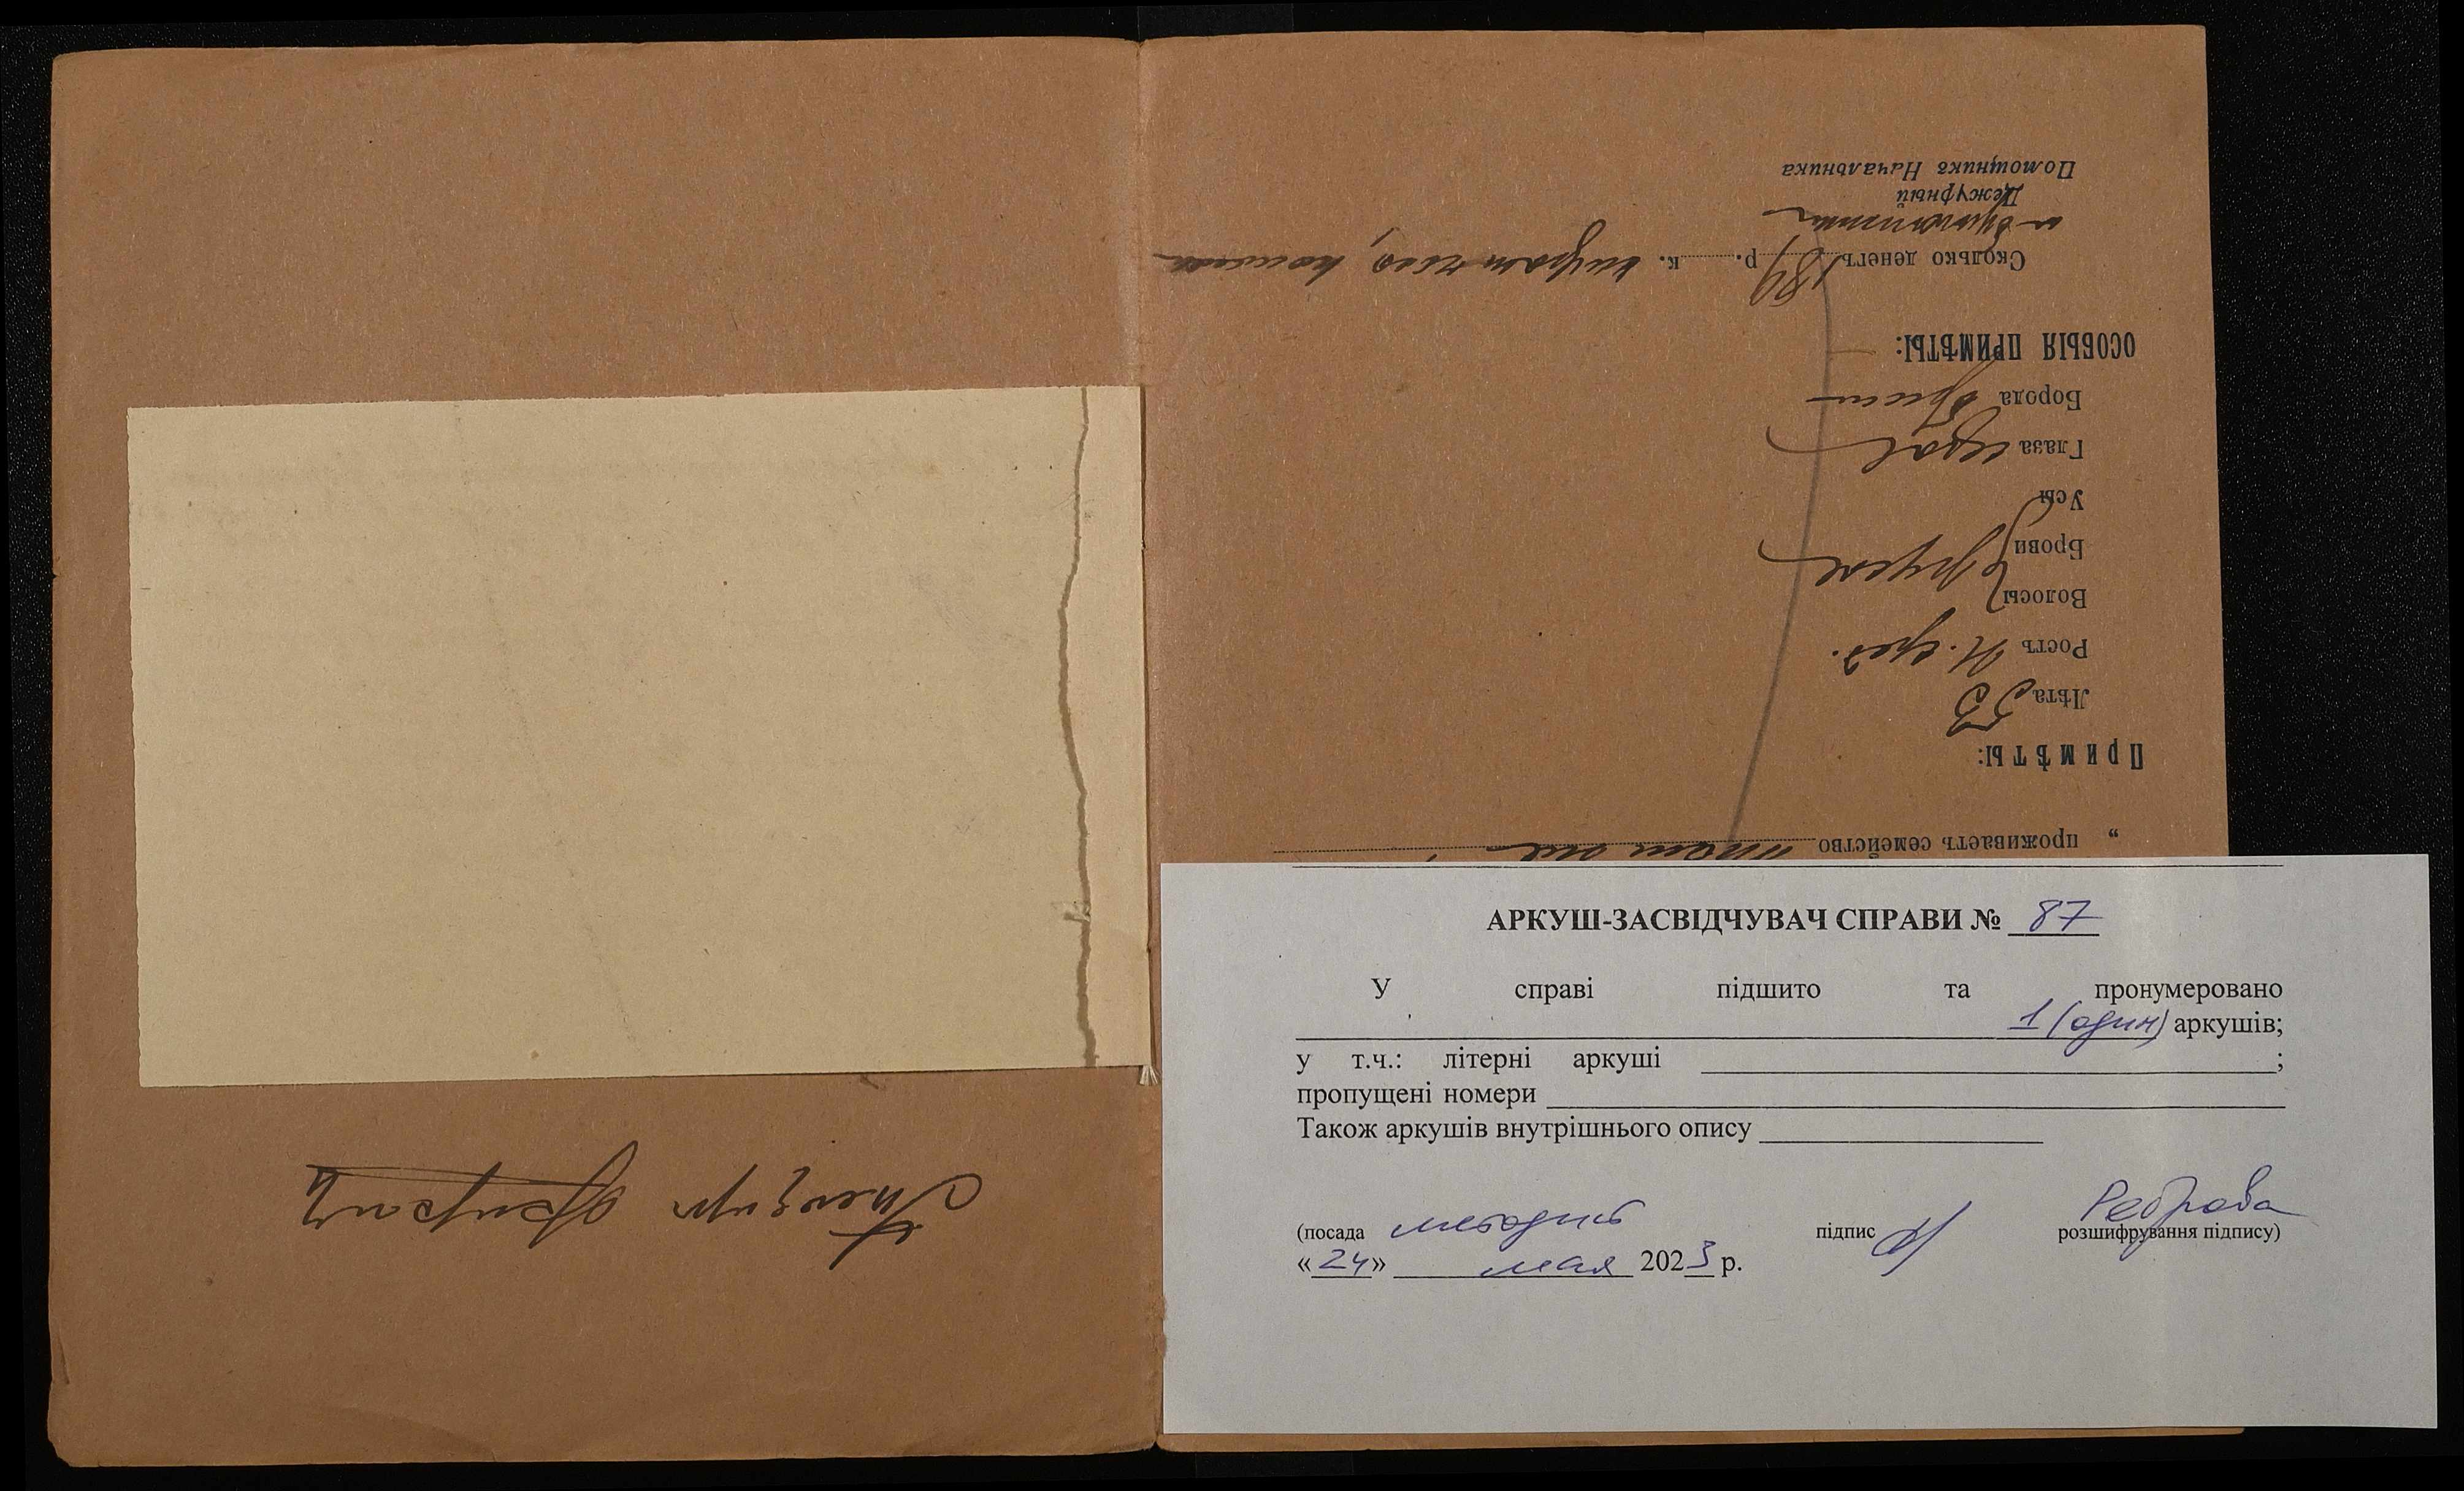 " проживаетъ семейство там же
Примѣты:
Лѣта 53
Ростъ Н. сред.
Волосы
Брови русые
Усы
Глаза серые
Борода бреет
ОСОБЫЯ ПРИМѢТЫ:
Сколько денегъ 189 р. к.
Дежурный
Помощникъ Начальника
АРКУШ-ЗАСВІДЧУВАЧ СПРАВИ № 87
У справі підшито та пронумеровано
1 (один) аркушів;
у т.ч.: літерні аркуші ;
пропущені номери
Також аркушів внутрішнього опису
(посада методист підпис Реброва розшифрування підпису)
«24» мая 2023 р.